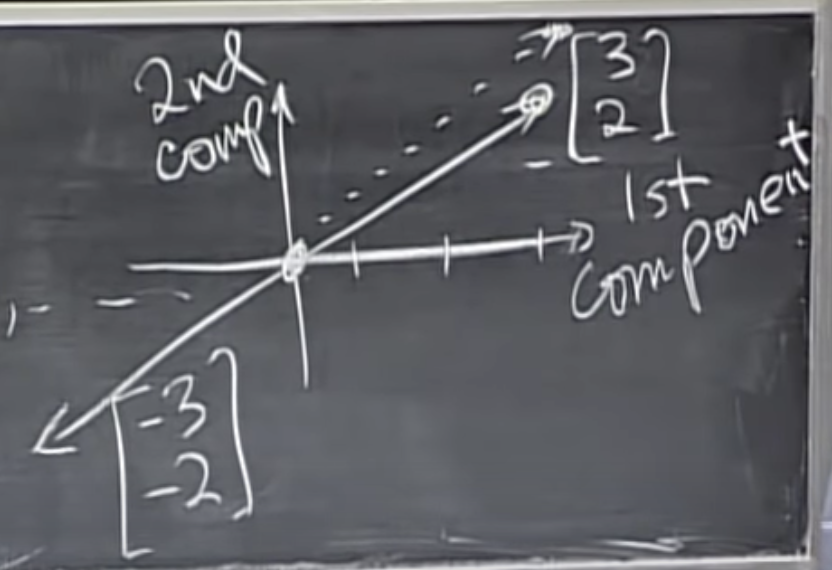 2nd
comp
[3
2]
1st
component
[-3
-2]